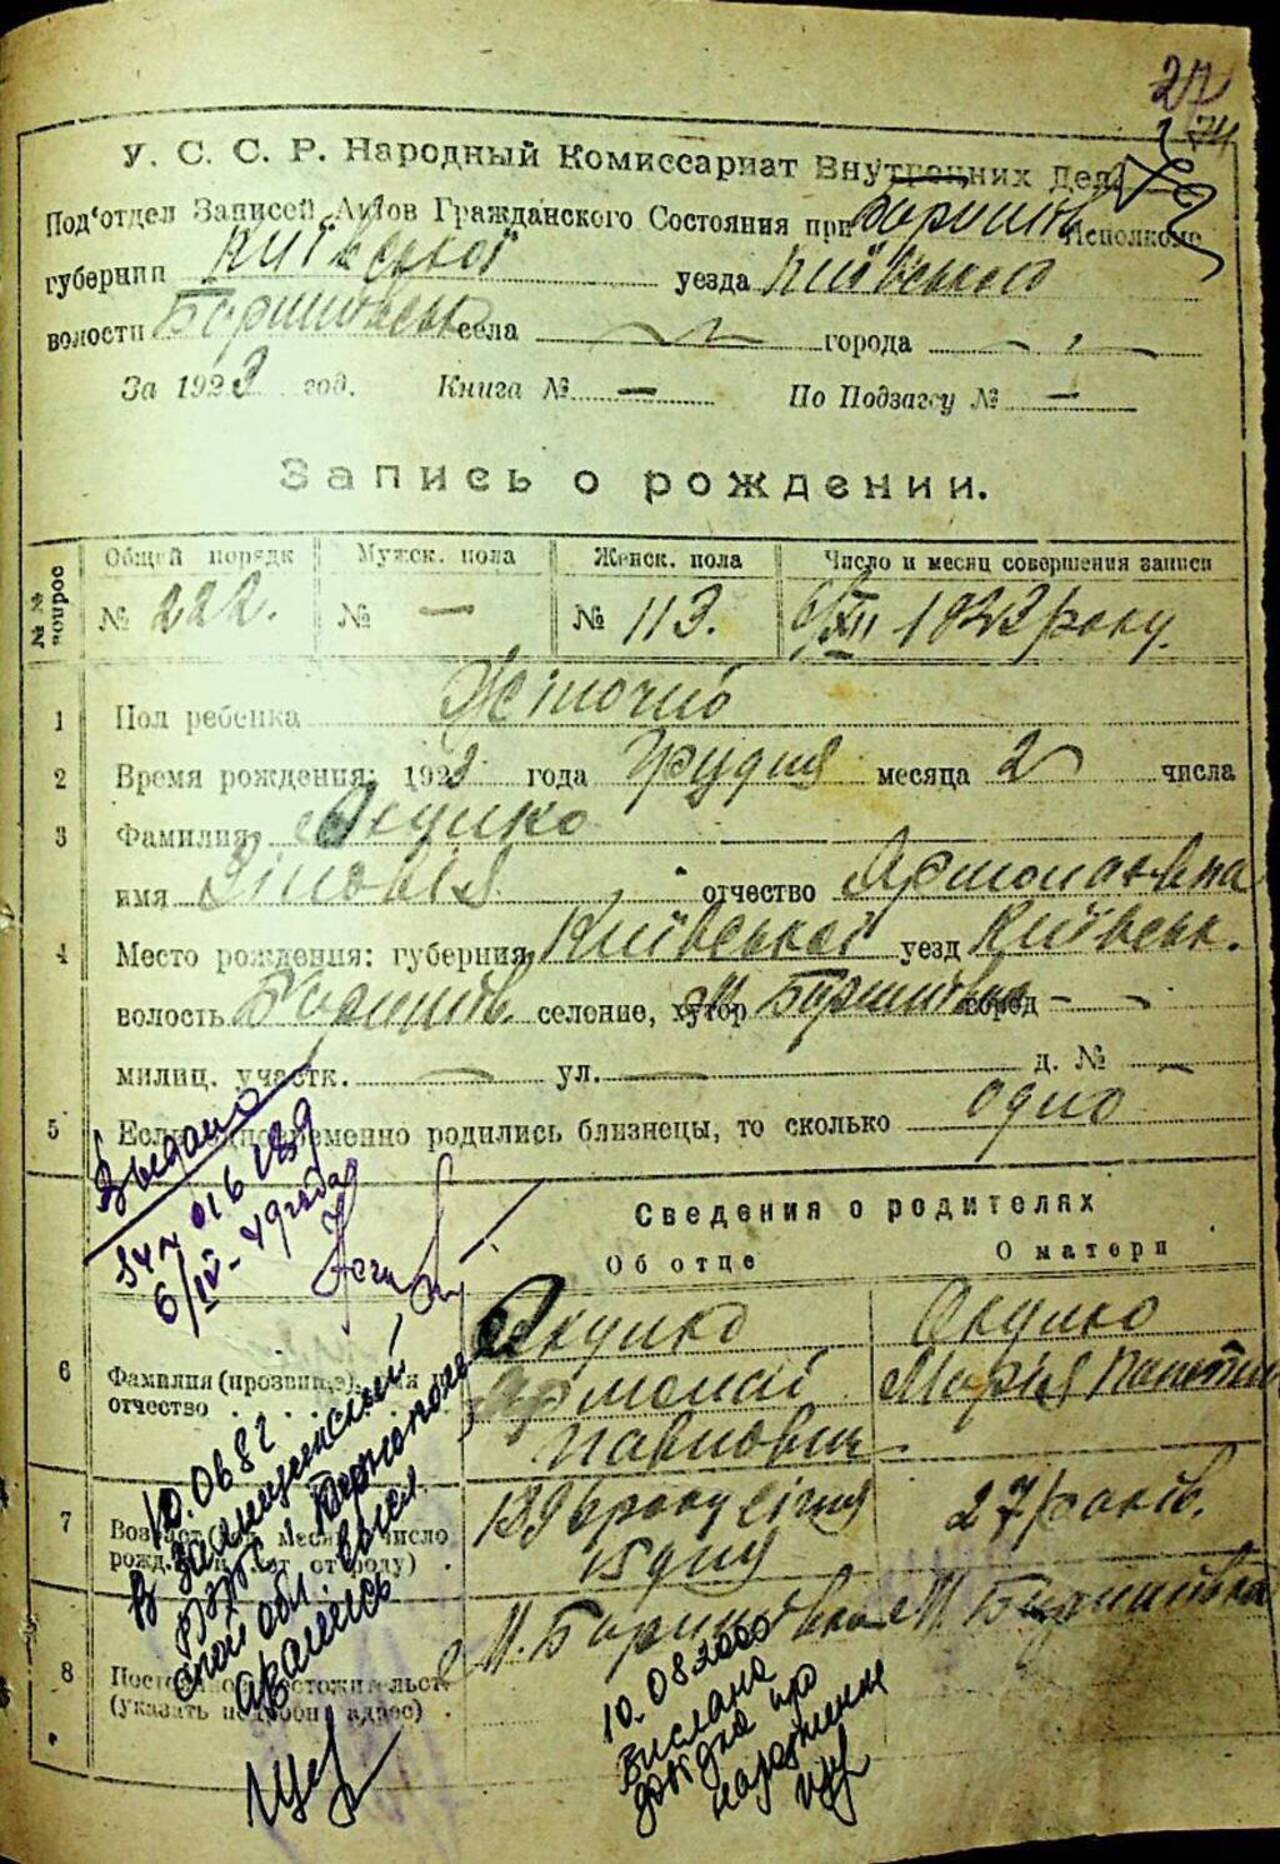 27
74
У. С. С. Р. Народный Комиссариат Внутренних Дел.
Под'отдел Записей Актов Гражданского Состояния при Боришпів. Исполкоме
губернии Київської уезда Київського
волости Боришпівськ села — города —
За 1923 год. Книга № — По Подзагсу № —
Запись о рождении.
№№ вопрос Общей порядк Мужск. пола Женск. пола Число и месяц совершения записи
№ 222. № — № 113. 6/XII 1923 року.
1 Пол ребенка Жіночий
2 Время рождения: 1923 года Грудня месяца 2 числа
3 Фамилия Якушко
имя Зіновія отчество
4 Место рождения: губерния Київської уезд Київськ.
волость Боришпів. селение, хутор М. Боришпівка город —
милиц. участк. — ул. — д. № —
5 Если одновременно родились близнецы, то сколько одно
Выдано
016189
6/IV-49 года
Сведения о родителях
Об отце О матери
6 Фамилия (прозвище), имя и отчество
Якушко
Павлович
Якушко
Марія
7 Возраст
рожд.
1896 року січня
15 дня
27 років.
8 Постоянное местожительст.
(указать подробн. адрес)
М. Боришпівка М. Боришпівка
10.0682
В Залищенский
10.08 2000
Вислана
довідка про
народження